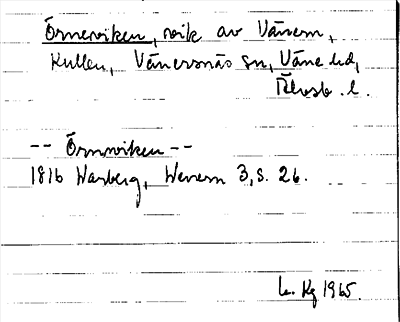 Örneviken, vik av Vänern,
Kullen, Vänersnäs sn, Väne hd,
Älvsb. l.
-- Örnwiken --
1816 Warberg, Wenern 3, s. 26.
Kg 1965.